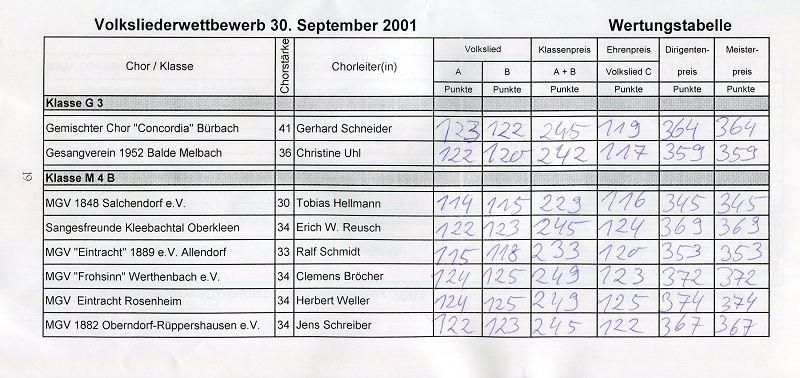 Volksliederwettbewerb 30. September 2001 Wertungstabelle
Chor / Klasse Chorstärke Chorleiter(in) Volkslied Klassenpreis Ehrenpreis Dirigenten- Meister-
A B A + B Volkslied C preis preis
Punkte Punkte Punkte Punkte Punkte Punkte
Klasse G 3
Gemischter Chor "Concordia" Bürbach 41 Gerhard Schneider 123 122 245 119 364 364
Gesangverein 1952 Balde Melbach 36 Christine Uhl 122 120 242 117 359 359
Klasse M 4 B
MGV 1848 Salchendorf e.V. 30 Tobias Hellmann 114 115 229 116 345 345
Sangesfreunde Kleebachtal Oberkleen 34 Erich W. Reusch 122 123 245 124 369 369
MGV "Eintracht" 1889 e.V. Allendorf 33 Ralf Schmidt 115 118 233 120 353 353
MGV "Frohsinn" Werthenbach e.V. 34 Clemens Bröcher 124 125 249 123 372 372
MGV Eintracht Rosenheim 34 Herbert Weller 124 125 249 125 374 374
MGV 1882 Oberndorf-Rüppershausen e.V. 34 Jens Schreiber 122 123 245 122 367 367
19